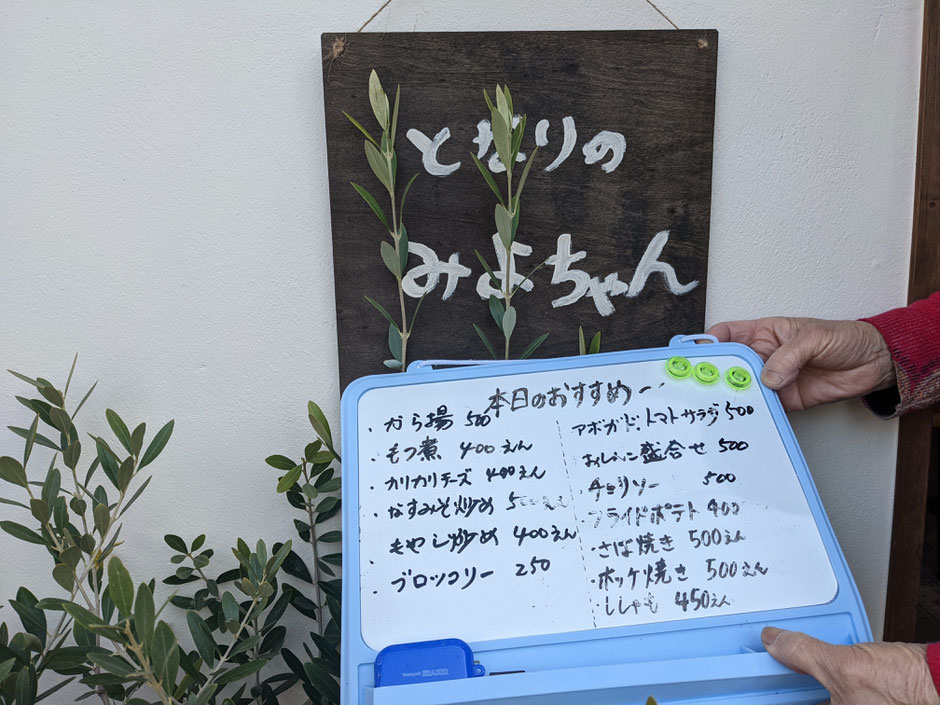 となりの
みよちゃん
本日のおすすめー
・から揚 500
・もつ煮 400えん
・カリカリチーズ 400えん
・なすみそ炒め 500えん
・もやし炒め 400えん
・ブロッコリー 250
アボガド、トマトサラダ 500
盛合せ 500
・チョリソー 500
・フライドポテト 400
・さば焼き 500えん
・ホッケ焼き 500えん
・ししゃも 450えん